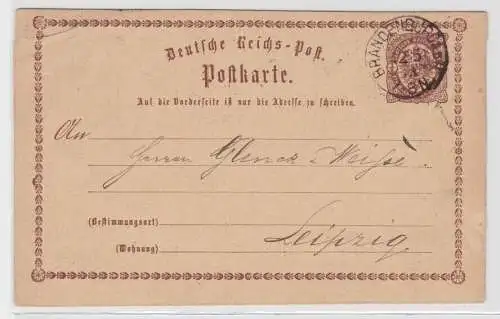 Deutsche Reichs-Post.
BRANDENBURG
Postkarte.
Auf die Vorderseite ist nur die Adresse zu schreiben.
An
Herren Glenck & Weisse
(Bestimmungsort)
Leipzig.
(Wohnung)